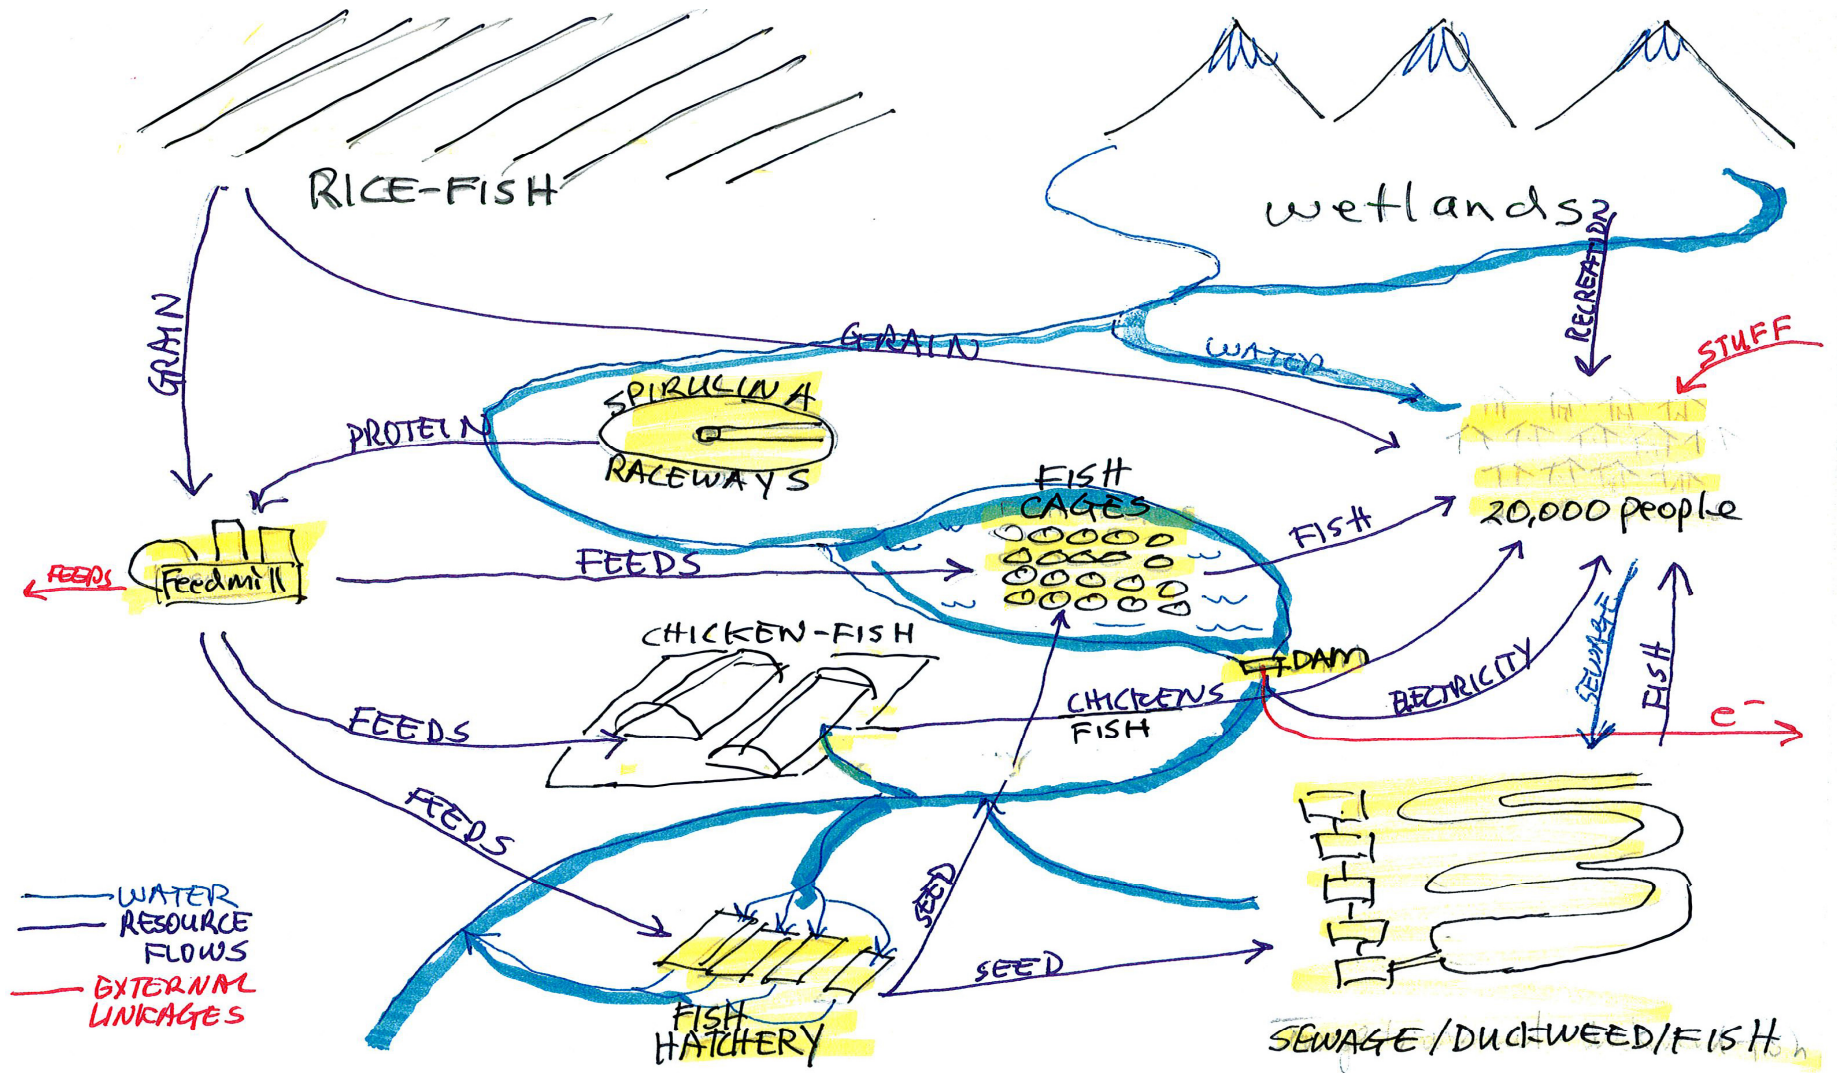 RICE-FISH
wetlands
RECREATION
GRAIN
GRAIN
WATER
STUFF
SPIRULINA
RACEWAYS
PROTEIN
FISH
CAGES
20,000 people
FISH
FEEDS
Feedmill
FEEDS
CHICKEN-FISH
DAM
CHICKENS
FISH
ELECTRICITY
SEWAGE
FISH
e-
FEEDS
FEEDS
SEED
SEED
WATER
RESOURCE
FLOWS
EXTERNAL
LINKAGES
FISH
HATCHERY
SEWAGE/DUCKWEED/FISH